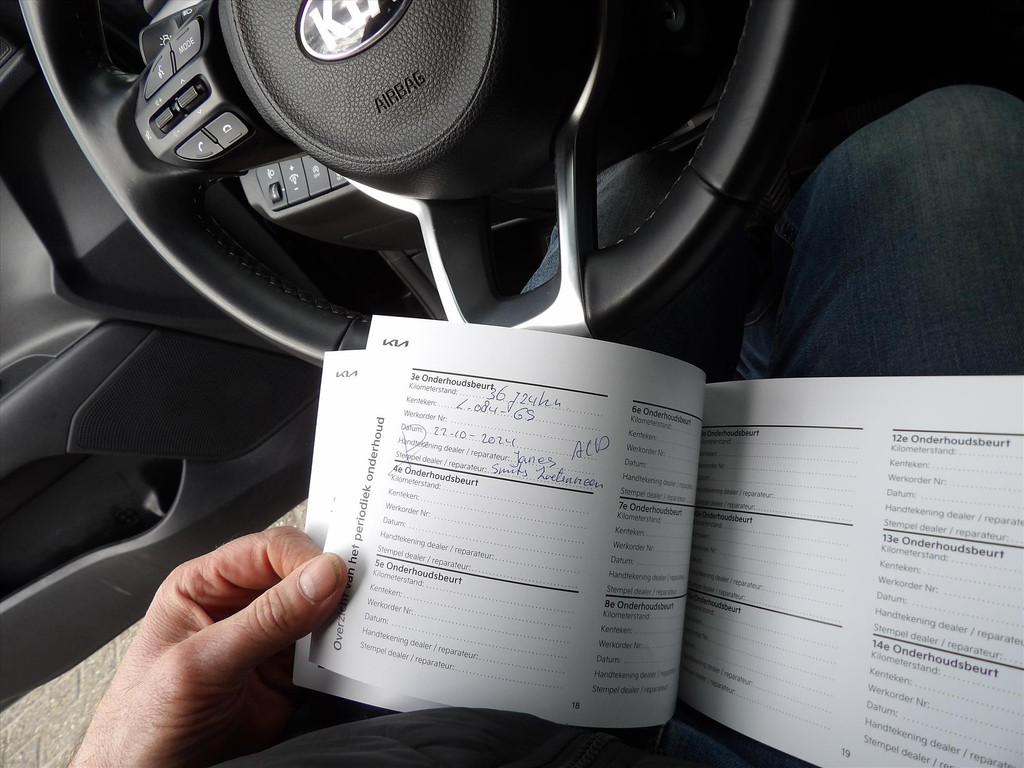 KIA
AIRBAG
MODE
KIA
KIA
Overzicht van het periodiek onderhoud
3e Onderhoudsbeurt
Kilometerstand: 36 724km
Kenteken: L-084-GS
Werkorder Nr:
Datum: 22-10-2024
Handtekening dealer / reparateur: James
Stempel dealer / reparateur: Smits
4e Onderhoudsbeurt
Kilometerstand:
Kenteken:
Werkorder Nr:
Datum:
Handtekening dealer / reparateur:
Stempel dealer / reparateur:
5e Onderhoudsbeurt
Kilometerstand:
Kenteken:
Werkorder Nr:
Datum:
Handtekening dealer / reparateur:
Stempel dealer / reparateur:
6e Onderhoudsbeurt
Kilometerstand:
Kenteken:
Werkorder Nr:
Datum:
Handtekening dealer / reparateur:
Stempel dealer / reparateur:
7e Onderhoudsbeurt
Kilometerstand:
Kenteken:
Werkorder Nr:
Datum:
Handtekening dealer / reparateur:
Stempel dealer / reparateur:
8e Onderhoudsbeurt
Kilometerstand:
Kenteken:
Werkorder Nr:
Datum:
Handtekening dealer / reparateur:
Stempel dealer / reparateur
18
Onderhoudsbeurt
Kilometerstand:
Kenteken:
Werkorder Nr:
Datum:
Handtekening dealer / reparateur:
Stempel dealer / reparateur:
Onderhoudsbeurt
Kilometerstand:
Kenteken:
Werkorder Nr:
Datum:
Handtekening dealer / reparateur:
Stempel dealer / reparateur:
Onderhoudsbeurt
Kilometerstand:
Kenteken:
Werkorder Nr:
Datum:
Handtekening dealer / reparateur:
Stempel dealer / reparateur:
12e Onderhoudsbeurt
Kilometerstand:
Kenteken:
Werkorder Nr:
Datum:
Handtekening dealer / reparateur
Stempel dealer / reparateur
13e Onderhoudsbeurt
Kilometerstand:
Kenteken:
Werkorder Nr:
Datum:
Handtekening dealer / reparateur
Stempel dealer / reparateur:
14e Onderhoudsbeurt
Kilometerstand:
Kenteken:
Werkorder Nr:
Datum:
Handtekening dealer / reparateur
Stempel dealer / reparateur
19